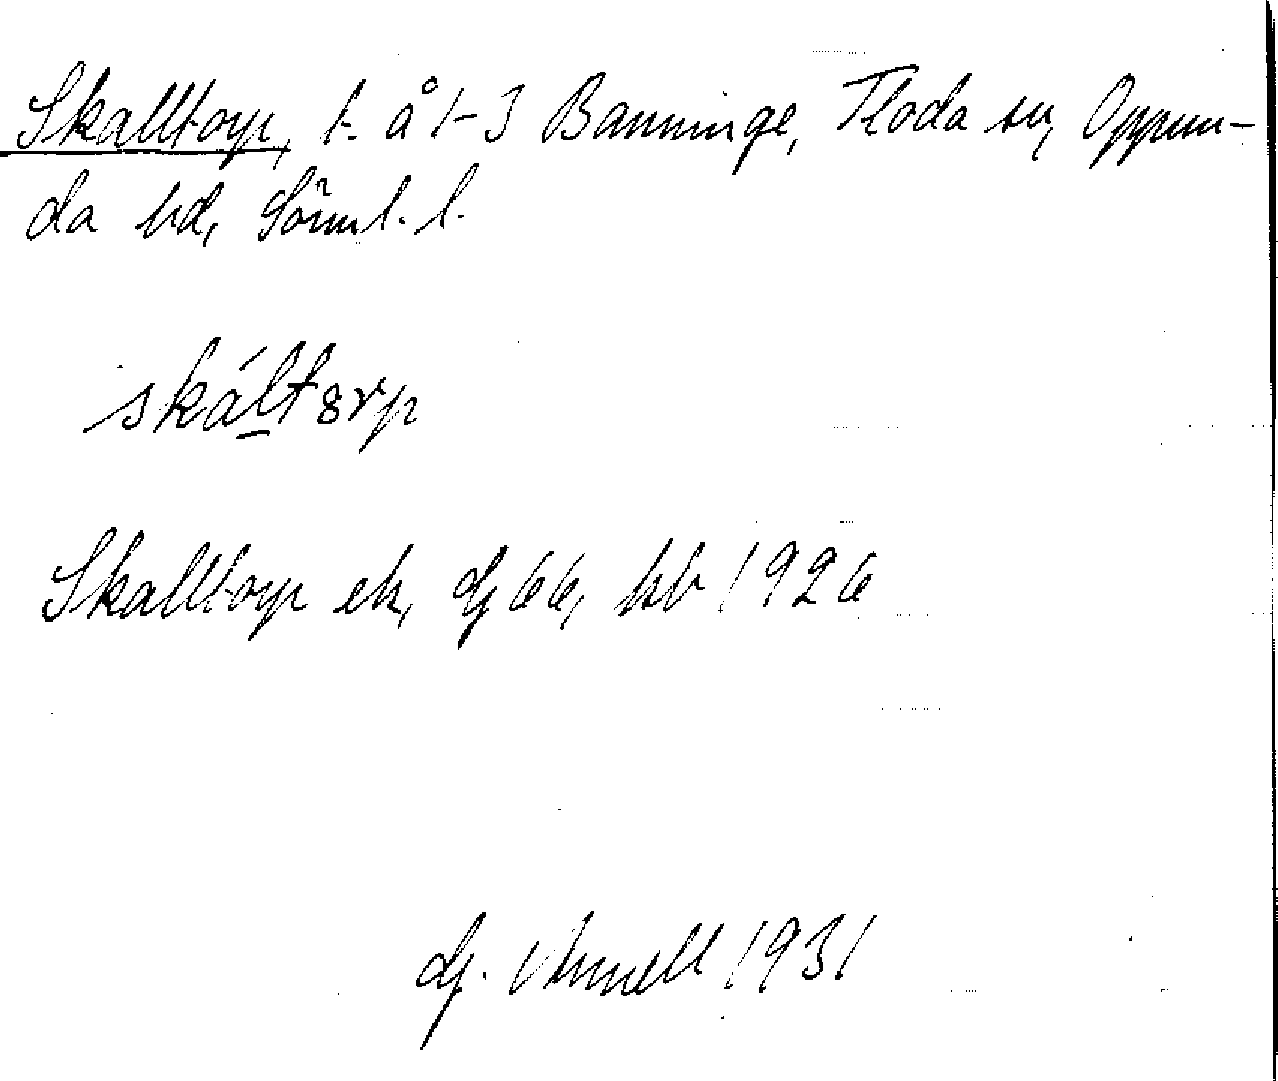 Skalltorp, t. å 1-3 Banninge, Floda sn, Oppun-
da hd, Söderml. l.
skált8rp
Skalltorp ek, dj 66, kb 1926
dj. 1931